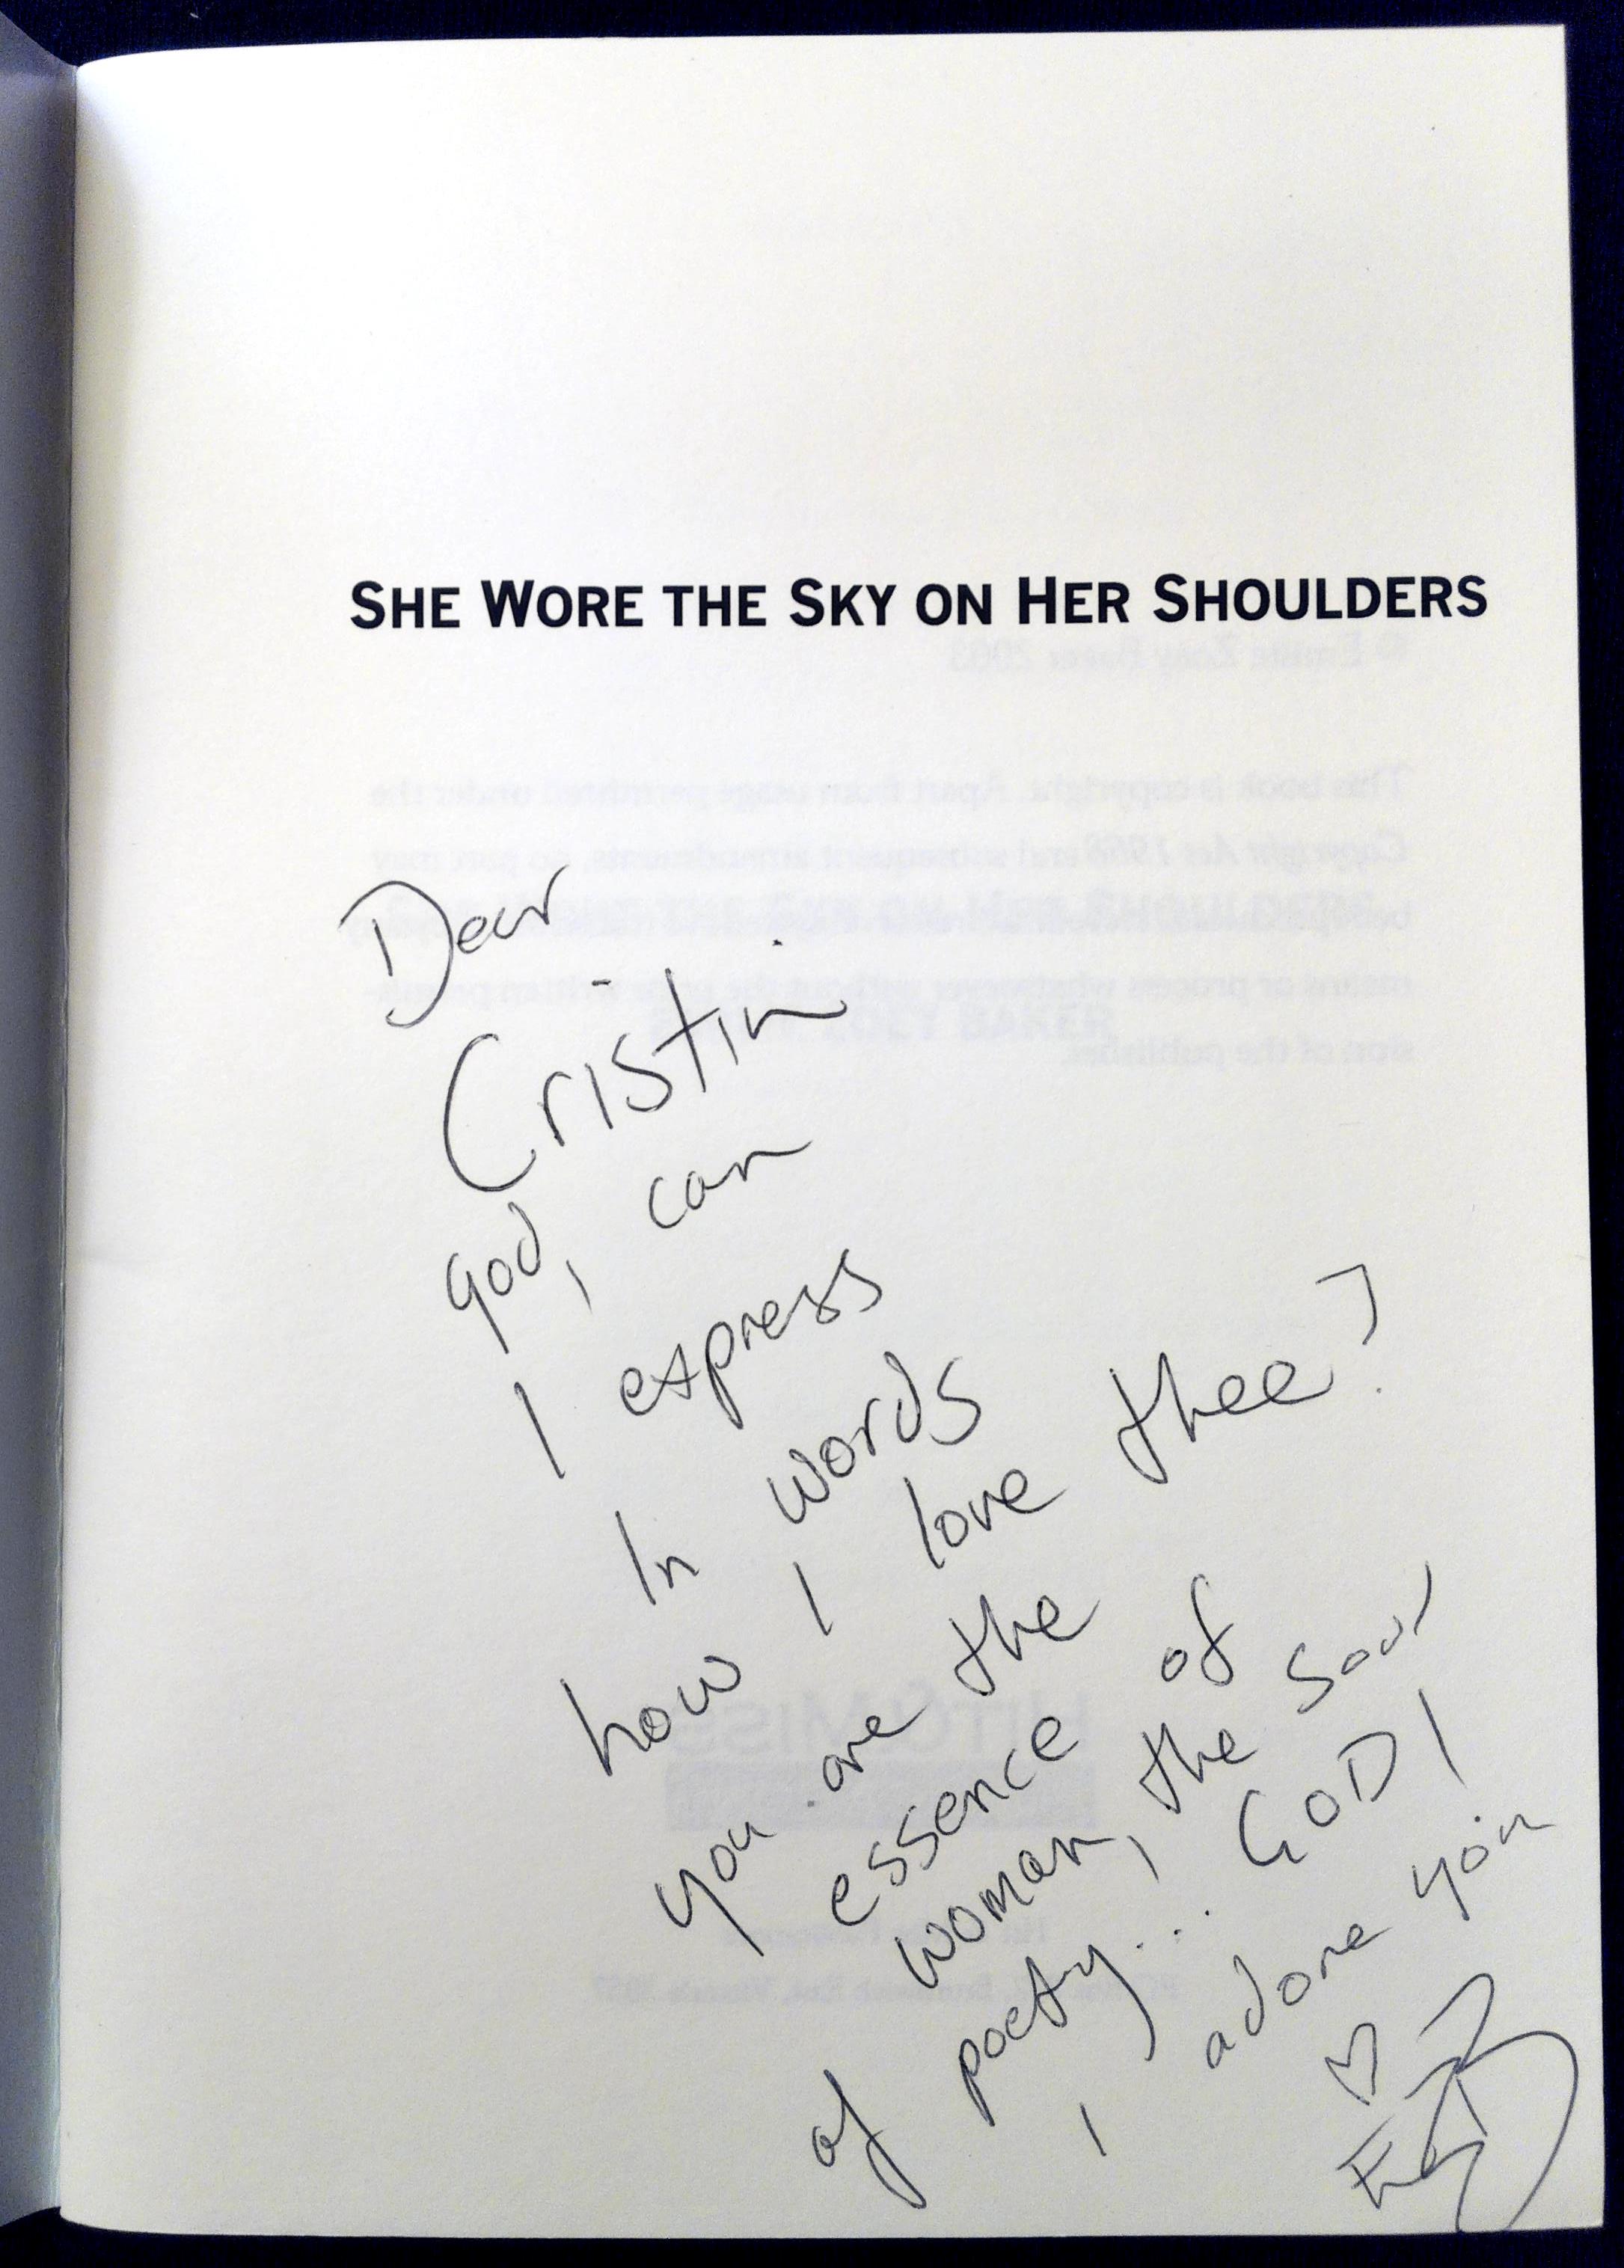 SHE WORE THE SKY ON HER SHOULDERS
Dear
Cristin
god, can
I express
in words
how I love thee?
you are the
essence of
woman, the soul
of poety... GOD!
I adore you